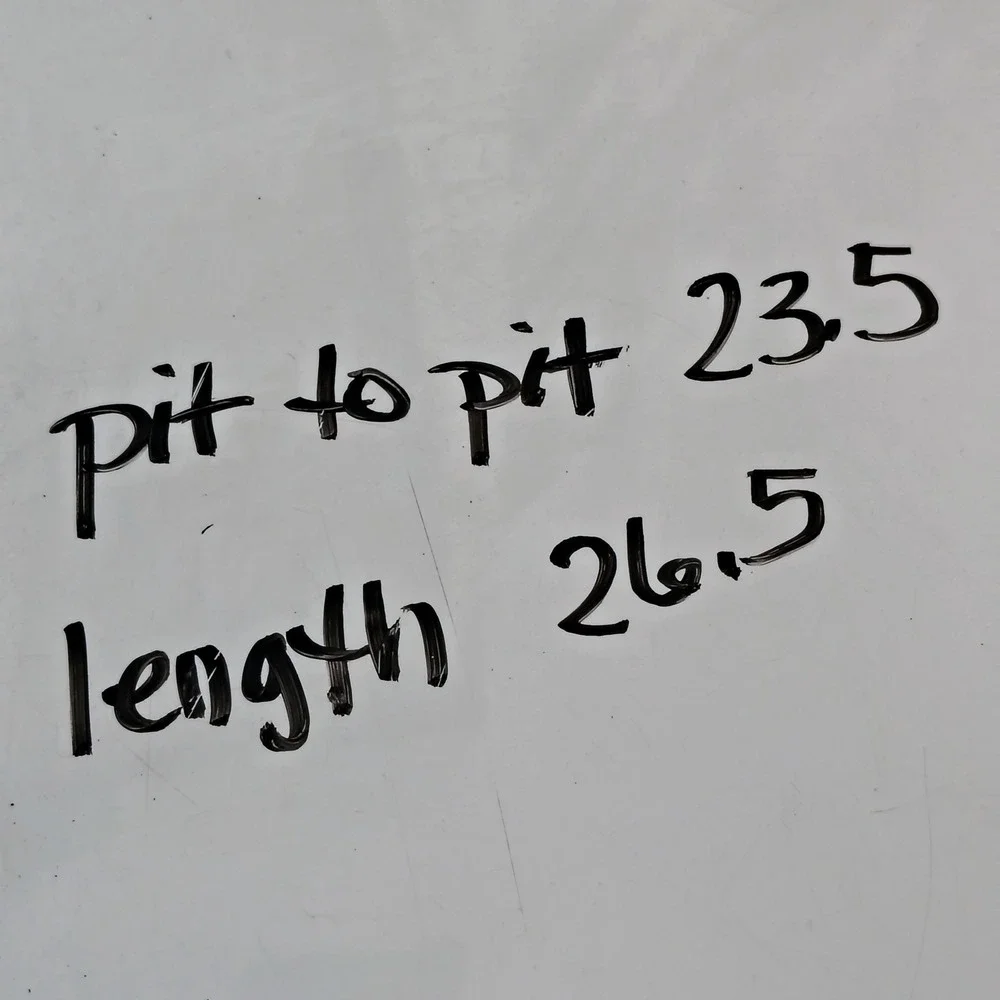 pit to pit 23.5
length 26.5